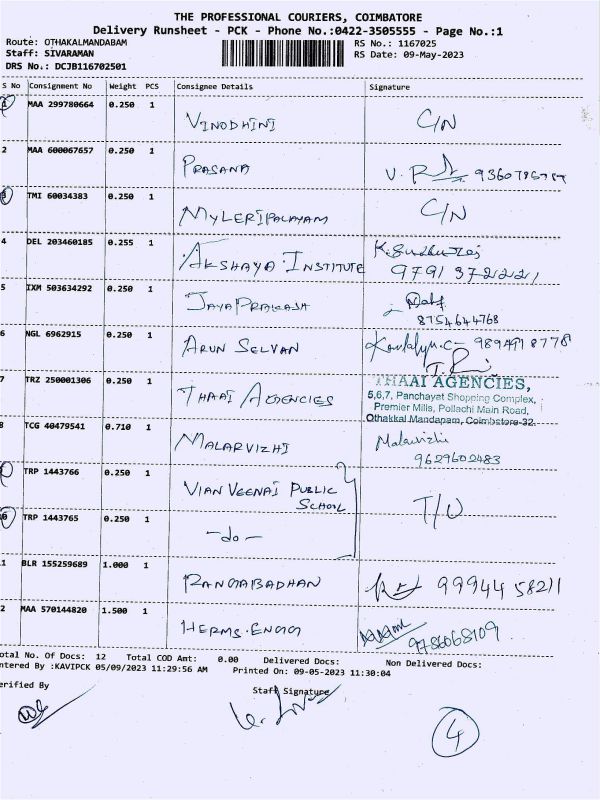 THE PROFESSIONAL COURIERS, COIMBATORE
Delivery Runsheet - PCK - Phone No.:0422-3505555 - Page No.:1
Route: OTHAKALMANDABAM
RS No.: 1167025
Staff: SIVARAMAN
RS Date: 09-May-2023
DRS No.: DCJB116702501
S No Consignment No Weight PCS Consignee Details Signature
1 MAA 299780664 0.250 1 VINODHINI C/N
2 MAA 600067657 0.250 1 PRASANA
3 TMI 60034383 0.250 1 MYLERIPALAYAM C/N
4 DEL 203460185 0.255 1 AKSHAYA INSTITUTE
9791372221
5 IXM 503634292 0.250 1 JAYA PRAKASH
8754644768
6 NGL 6962915 0.250 1 ARUN SELVAN
7 TRZ 250001306 0.250 1 THAAI AGENCIES
THAAI AGENCIES,
5,6,7, Panchayat Shopping Complex,
Premier Mills, Pollachi Main Road,
Othakkal Mandapam, Coimbatore-32.
8 TCG 40479541 0.710 1 MALARVIZHI Malarvizhi
9629602483
TRP 1443766 0.250 1 VIAN VEENAI PUBLIC SCHOOL
T/U
TRP 1443765 0.250 1 -do-
1 BLR 155259689 1.000 1 RANGABADHAN 9994458211
2 MAA 570144820 1.500 1 HERMS.ENGG
9786068109
otal No. Of Docs: 12 Total COD Amt: 0.00 Delivered Docs: Non Delivered Docs:
ntered By :KAVIPCK 05/09/2023 11:29:56 AM Printed On: 09-05-2023 11:30:04
erified By
Staff Signature
4